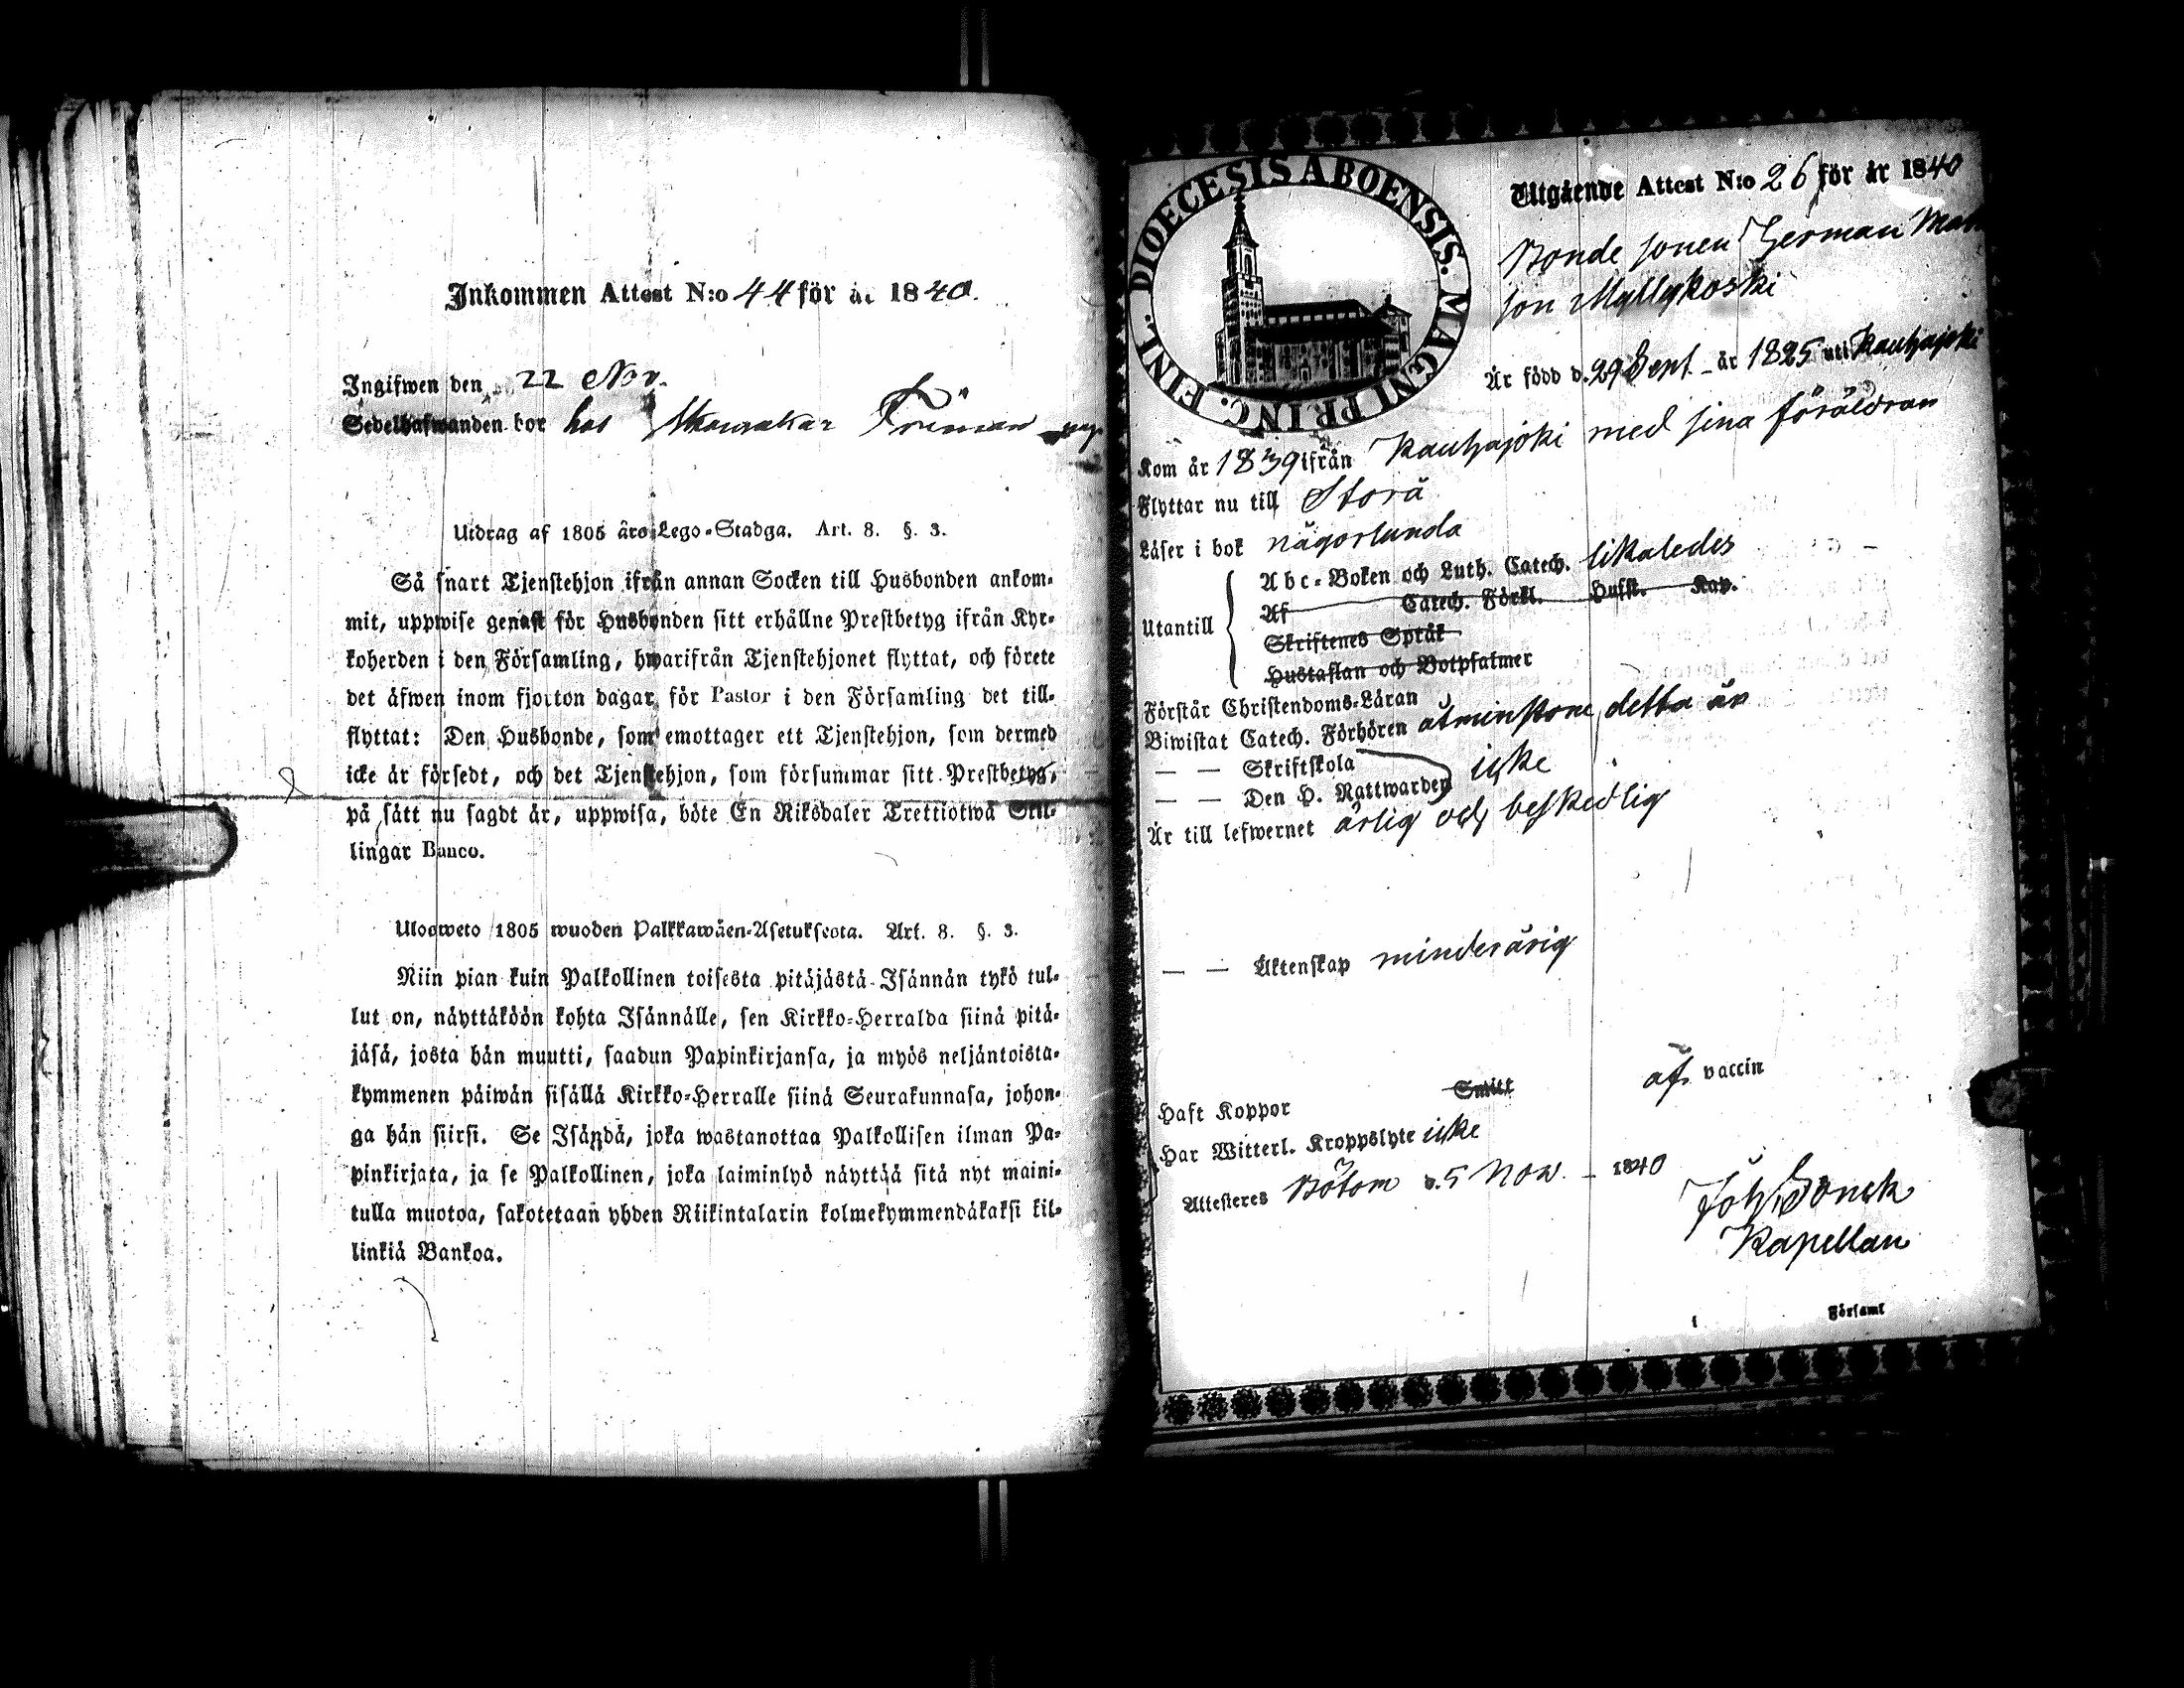 Inkommen Attest N:o 44 för år 1840.
Ingifwen den 22 Nov.
Sedelhafwanden bor hos
Utdrag af 1805 års Lego-Stadga. Art. 8. §. 3.
Så snart Tjenstehjon ifrån annan Socken till Husbonden ankom-
mit, uppwise genast för Husbonden sitt erhållne Prestbetyg ifrån Kyr-
koherden i den Församling, hwarifrån Tjenstehjonet flyttat, och förete
det äfwen inom fjorton dagar för Pastor i den Församling det till-
flyttat: Den Husbonde, som emottager ett Tjenstehjon, som dermed
icke är försedt, och det Tjenstehjon, som försummar sitt Prestbetyg,
på sätt nu sagdt är, uppwisa, böte En Riksdaler Trettiotwå Skil-
lingar Banco.
Ulosweto 1805 wuoden Palkkawäen-Asetuksesta. Art. 8. §. 3.
Niin pian kuin Palkollinen toisesta pitäjästä Isännän tykö tul-
lut on, näyttäköön kohta Isännälle, sen Kirkko-Herralda siinä pitä-
jäsä, josta hän muutti, saadun Papinkirjansa, ja myös neljäntoista-
kymmenen päiwän sisällä Kirkko-Herralle siinä Seurakunnasa, johon-
ga hän siirsi. Se Isändä, joka wastanottaa Palkollisen ilman Pa-
pinkirjata, ja se Palkollinen, joka laiminlyö näyttää sitä nyt maini-
tulla muotoa, sakotetaan yhden Riikintalarin kolmekymmendäkaksi kil-
linkiä Bankoa.
DIOECESIS ABOENSIS. MAGNI PRINC. FINL.
Utgående Attest N:o 26 för år 1840
Bonde sonen Herman
son Myllykoski
Är född d. 29 Sept. år 1825 uti Kauhajoki
Kom år 1839 ifrån Kauhajoki med sina föräldrar
Flyttar nu till Storå
Läser i bok någorlunda
Utantill
Abc-Boken och Luth. Catech. likaledes
Af Catech. Förkl. Hufst. Kap.
Skriftenes Språk
Hustaflan och Botpsalmer
Förstår Christendoms-Läran
Biwistat Catech. Förhören åtminstone detta år
— — Skriftskola
— — Den H. Nattwarden icke
Är till lefwernet ärlig och beskedlig
— — Äktenskap minderårig
Haft Koppor Smitt af vaccin
Har Witterl. Kroppslyte icke
Attesteres Bötom d. 5 Nov. 1840
Kapellan
Församl